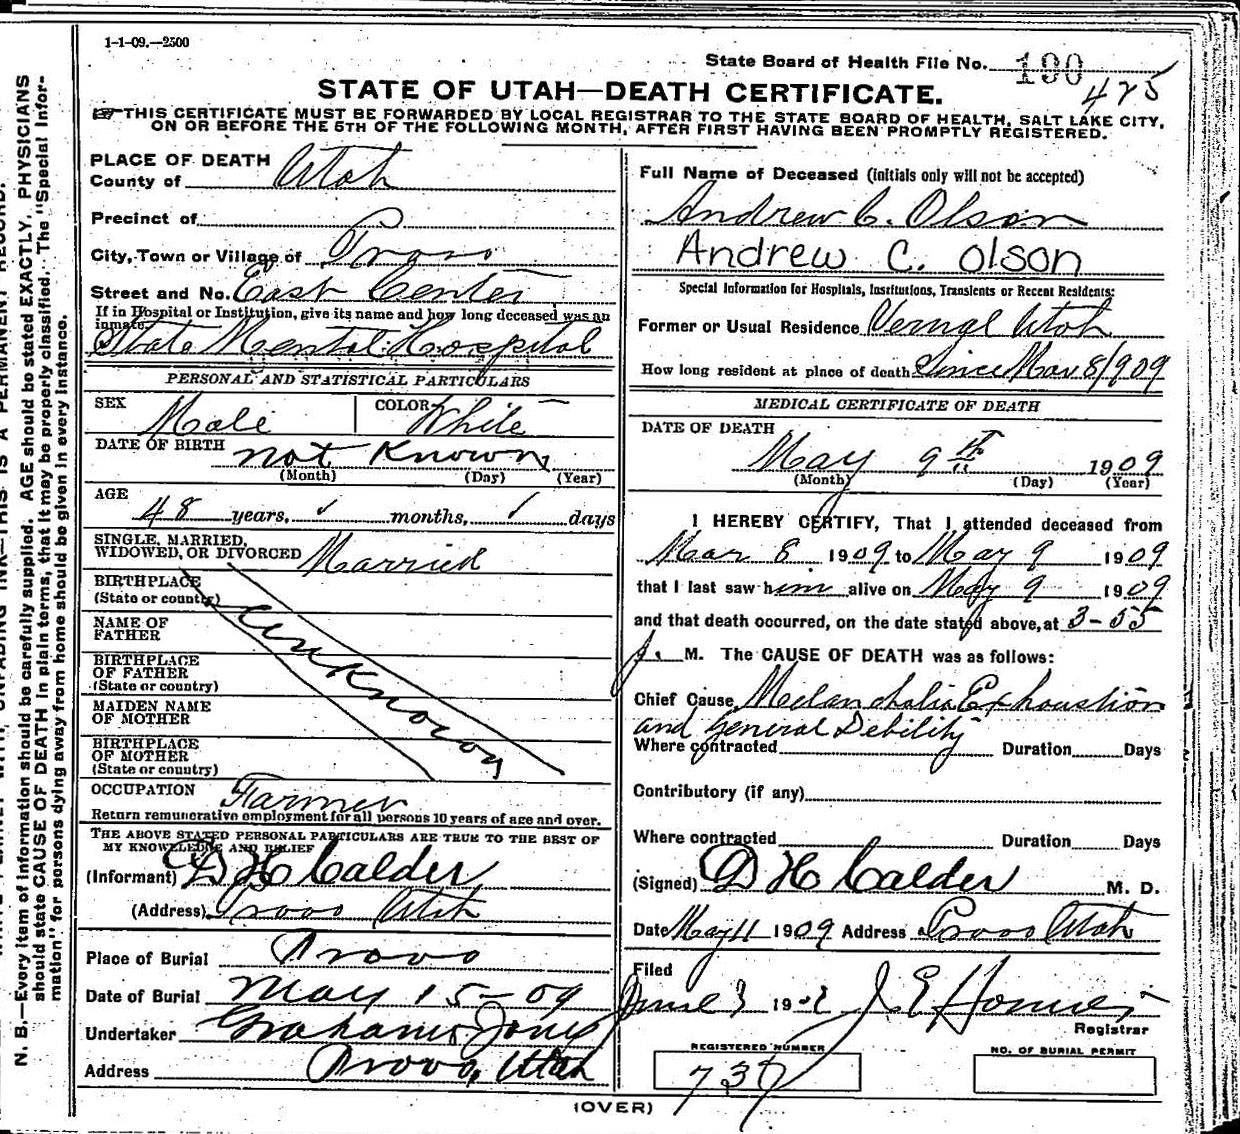 1-1-09.—2500
State Board of Health File No. 190
425
STATE OF UTAH—DEATH CERTIFICATE.
☞THIS CERTIFICATE MUST BE FORWARDED BY LOCAL REGISTRAR TO THE STATE BOARD OF HEALTH, SALT LAKE CITY,
ON OR BEFORE THE 5TH OF THE FOLLOWING MONTH, AFTER FIRST HAVING BEEN PROMPTLY REGISTERED.
PLACE OF DEATH
County of Utah
Precinct of
City, Town or Village of Provo
Street and No. East Center
If in Hospital or Institution, give its name and how long deceased was an
inmate.
State Mental Hospital
PERSONAL AND STATISTICAL PARTICULARS
SEX Male COLOR White
DATE OF BIRTH not Known
(Month) (Day) (Year)
AGE
48 years, ✓ months, ✓ days
SINGLE, MARRIED,
WIDOWED, OR DIVORCED Married
BIRTHPLACE
(State or country)
NAME OF
FATHER
BIRTHPLACE
OF FATHER
(State or country)
MAIDEN NAME
OF MOTHER
BIRTHPLACE
OF MOTHER
(State or country)
unknown
OCCUPATION Farmer
Return remunerative employment for all persons 10 years of age and over.
THE ABOVE STATED PERSONAL PARTICULARS ARE TRUE TO THE BEST OF
MY KNOWLEDGE AND BELIEF
(Informant) D H Calder
(Address) Provo Utah
Place of Burial Provo
Date of Burial May 15-09
Undertaker Graham & Jones
Address Provo, Utah
Full Name of Deceased (initials only will not be accepted)
Andrew C. Olson
Andrew C. Olson
Special Information for Hospitals, Institutions, Transients or Recent Residents:
Former or Usual Residence Vernal Utah
How long resident at place of death Since Mar 8/909
MEDICAL CERTIFICATE OF DEATH
DATE OF DEATH
May 9th 1909
(Month) (Day) (Year)
I HEREBY CERTIFY, That I attended deceased from
Mar 8 1909 to May 9 1909
that I last saw him alive on May 9 1909
and that death occurred, on the date stated above, at 3-55
M. The CAUSE OF DEATH was as follows:
Chief Cause Melancholia Exhaustion
and General Debility
Where contracted Duration Days
Contributory (if any)
Where contracted Duration Days
(Signed) D H Calder M. D.
Date May 11 1909 Address Provo Utah
Filed
June 3 190 J E
Registrar
REGISTERED NUMBER
737
NO. OF BURIAL PERMIT
(OVER)
N. B.—Every item of information should be carefully supplied. AGE should be stated EXACTLY. PHYSICIANS
should state CAUSE OF DEATH in plain terms, that it may be properly classified. The "Special Infor-
mation" for persons dying away from home should be given in every instance.